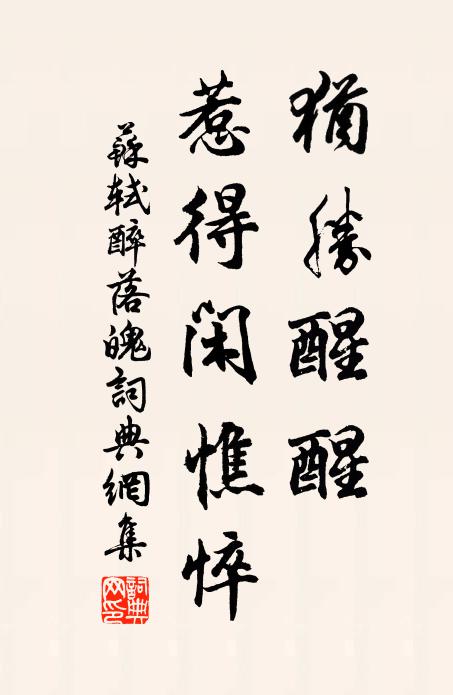 猶勝醒醒
惹得閑憔悴
蘇軾醉落魄詞典網集
詞典网印